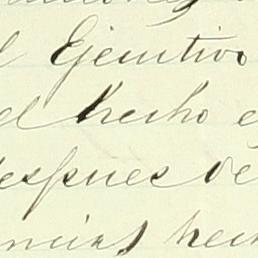 l Ejecutivo
el hecho e
despues de
ncias hech